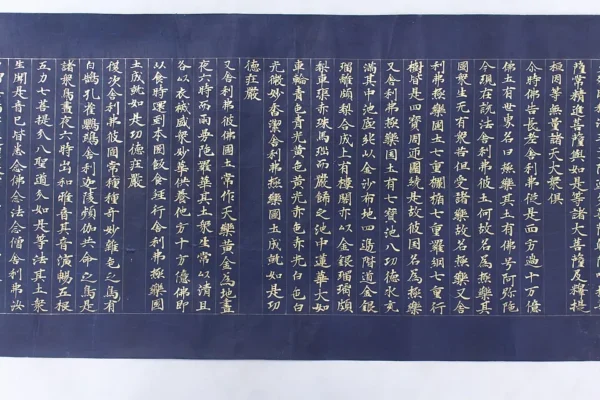 陁常精進菩薩與如是等諸大菩薩及釋提
桓因等無量諸天大衆俱
尒時佛告長老舍利弗從是西方過十万億
佛土有世界名曰極樂其土有佛号阿弥陁
今現在說法舍利弗彼土何故名爲極樂其
國衆生无有衆苦但受諸樂故名極樂又舍
利弗極樂國土七重欄楯七重羅網七重行
樹皆是四寶周迊圍繞是故彼國名爲極樂
又舍利弗極樂國土有七寶池八功德水充
滿其中池底純以金沙布地四邊階道金銀
瑠璃頗梨合成上有樓閣亦以金銀瑠璃頗
梨車璖赤珠馬瑙而嚴飾之池中蓮華大如
車輪青色青光黄色黄光赤色赤光白色白
光微妙香潔舍利弗極樂國土成就如是功
德莊嚴
又舍利弗彼佛國土常作天樂黄金爲地晝
夜六時而雨曼陁羅華其土衆生常以清旦
各以衣裓盛衆妙華供養他方十万億佛即
以食時還到本國飯食經行舍利弗極樂國
土成就如是功德莊嚴
復次舍利弗彼國常種種奇妙雜色之鳥有
白鵠孔雀鸚鵡舍利迦陵頻伽共命之鳥是
諸衆鳥晝夜六時出和雅音其音演暢五根
五力七菩提分八聖道分如是等法其土衆
生聞是音已皆悉念佛念法念僧舍利弗汝